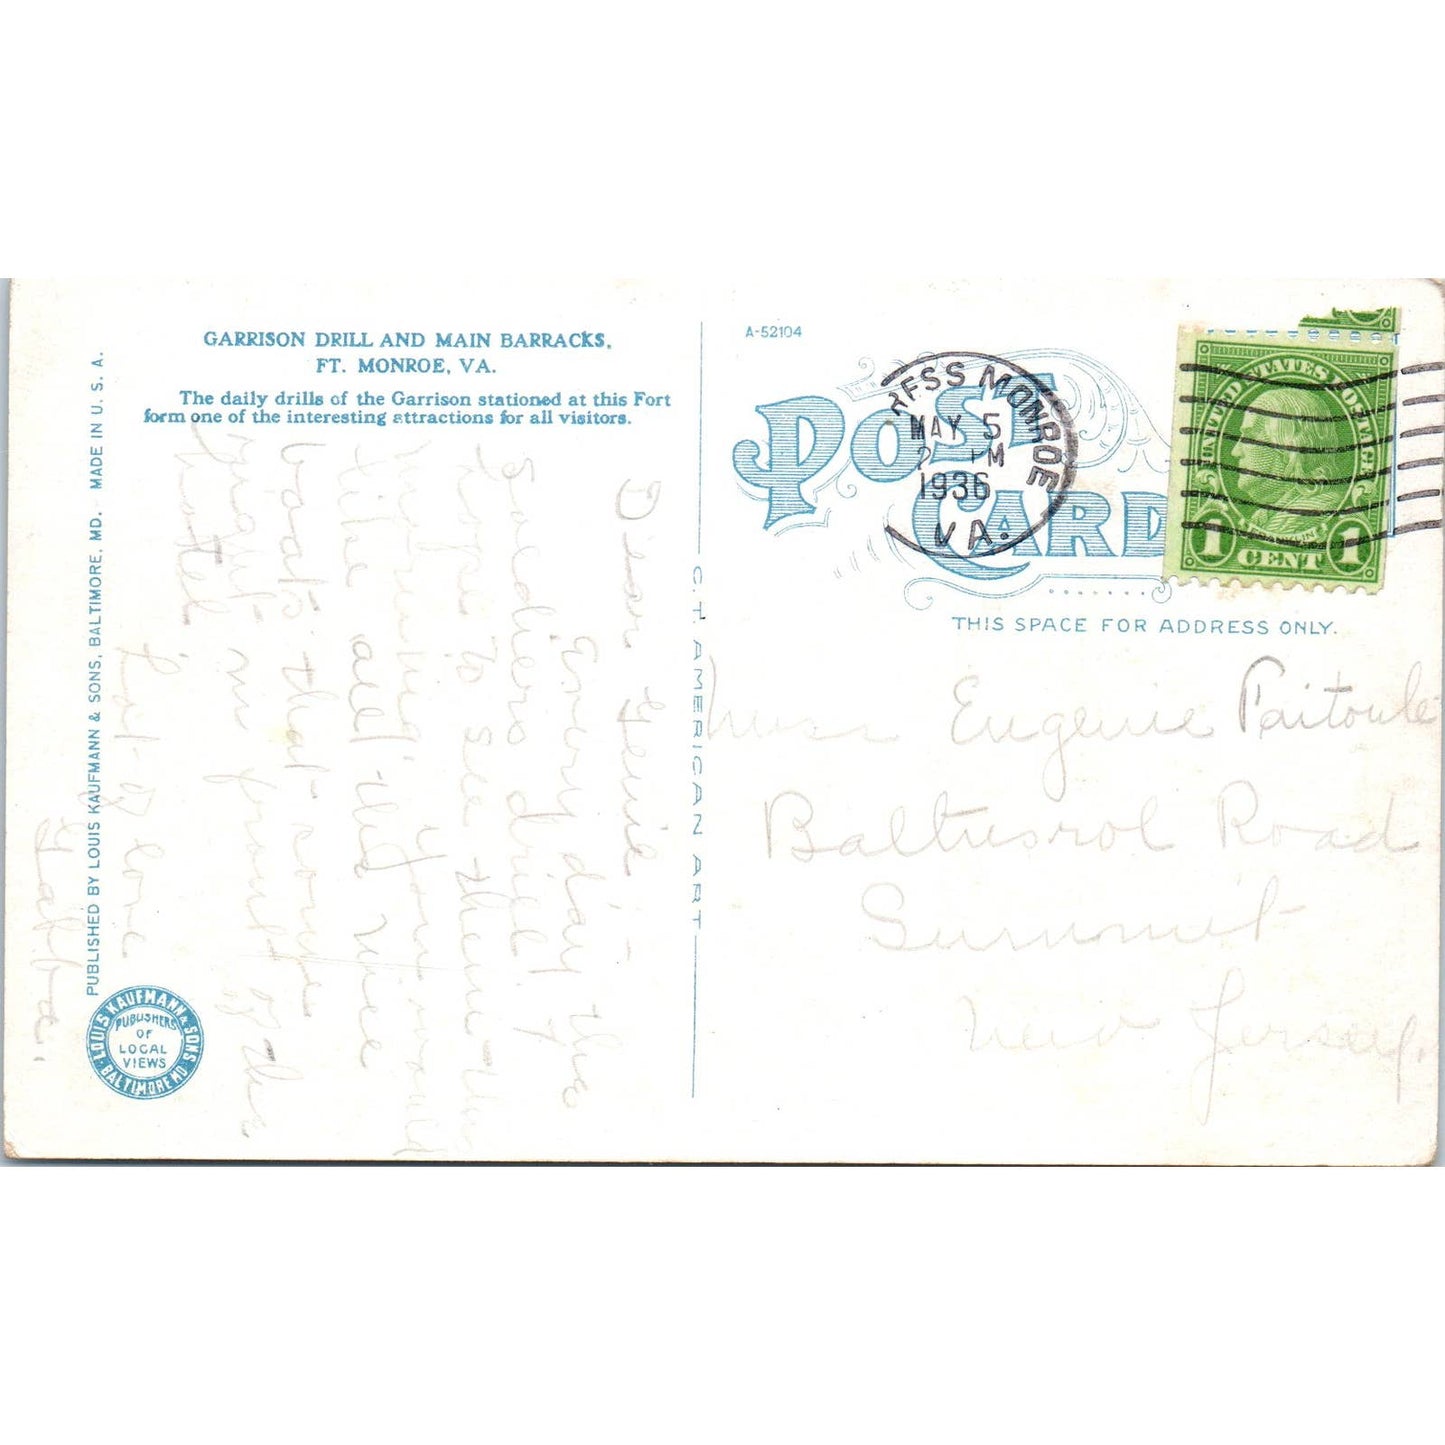 GARRISON DRILL AND MAIN BARRACKS,
FT. MONROE, VA.
The daily drills of the Garrison stationed at this Fort
form one of the interesting attractions for all visitors.
PUBLISHED BY LOUIS KAUFMANN & SONS, BALTIMORE, MD. MADE IN U. S. A.
LOUIS KAUFMANN & SONS
BALTIMORE MD
PUBLISHERS
OF
LOCAL
VIEWS
Dear Genie:-
Every day the
soldiers drill. I
hope to see them this
morning. You would
like all the nice
boats that come
right in front of the
hotel
Lot of love
C. T. AMERICAN ART
A-52104
POST CARD
RESS MONROE
MAY 5
2 PM
1936
VA.
UNITED STATES POSTAGE
FRANKLIN
1 CENT 1
THIS SPACE FOR ADDRESS ONLY.
Miss Eugenie Faitoute
Baltusrol Road
Summit
New Jersey.